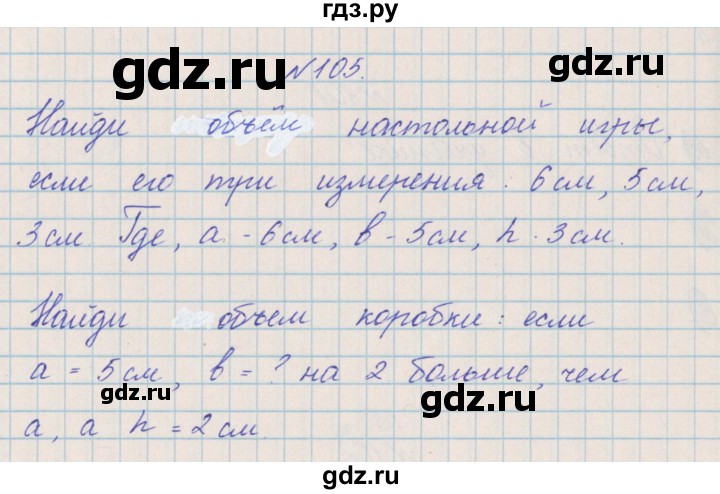 гдз.ру
gdz.ru
gdz.ru
№105.
Найди объём настольной игры,
если его три измерения: 6см, 5см,
3см. Где, a - 6см, b - 5см, h - 3см.
gdz.ru
gdz.ru
Найди объем коробки: если
a = 5см, b = ? на 2 больше, чем
a, а h = 2см.
gdz.ru
gdz.ru
gdz.ru